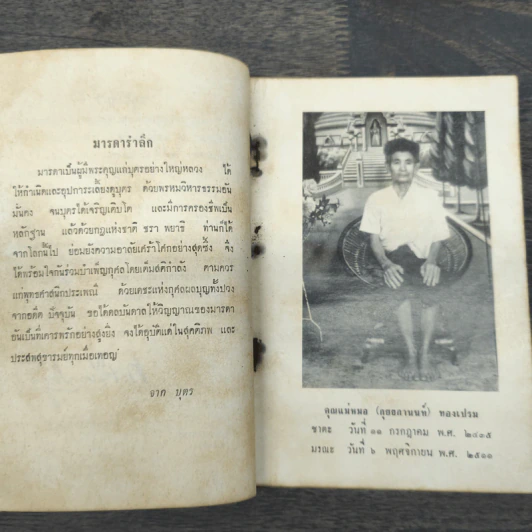 มารดารำลึก
มารดาเป็นผู้มีพระคุณแก่บุตรอย่างใหญ่หลวง ได้
ให้กำเนิดและอุปการะเลี้ยงดูบุตร ด้วยพรหมวิหารธรรมอัน
มั่นคง จนบุตรได้เจริญเติบโต และมีการครองชีพเป็น
หลักฐาน แล้วด้วยกฎแห่งชาติ ชรา พยาธิ ท่านก็ได้
จากโลกนี้ไป ย่อมยังความอาลัยเศร้าโศกอย่างสุดซึ้ง จึง
ได้พร้อมใจกันร่วมบำเพ็ญกุศลโดยเต็มสติกำลัง ตามควร
แก่พุทธศาสนิกประเพณี ด้วยเดชะแห่งกุศลผลบุญทั้งปวง
จากอดีต ปัจจุบัน ขอได้ดลบันดาลให้วิญญาณของมารดา
อันเป็นที่เคารพรักอย่างสูงยิ่ง จงได้อุบัติแต่ในสุคติภพ และ
ประสพสุขารมย์ทุกเมื่อเทอญ
จาก บุตร
คุณแม่หมล ทองเปรม
ชาตะ วันที่ ๑๑ กรกฎาคม พ.ศ. ๒๔๓๕
มรณะ วันที่ ๖ พฤศจิกายน พ.ศ. ๒๕๑๐